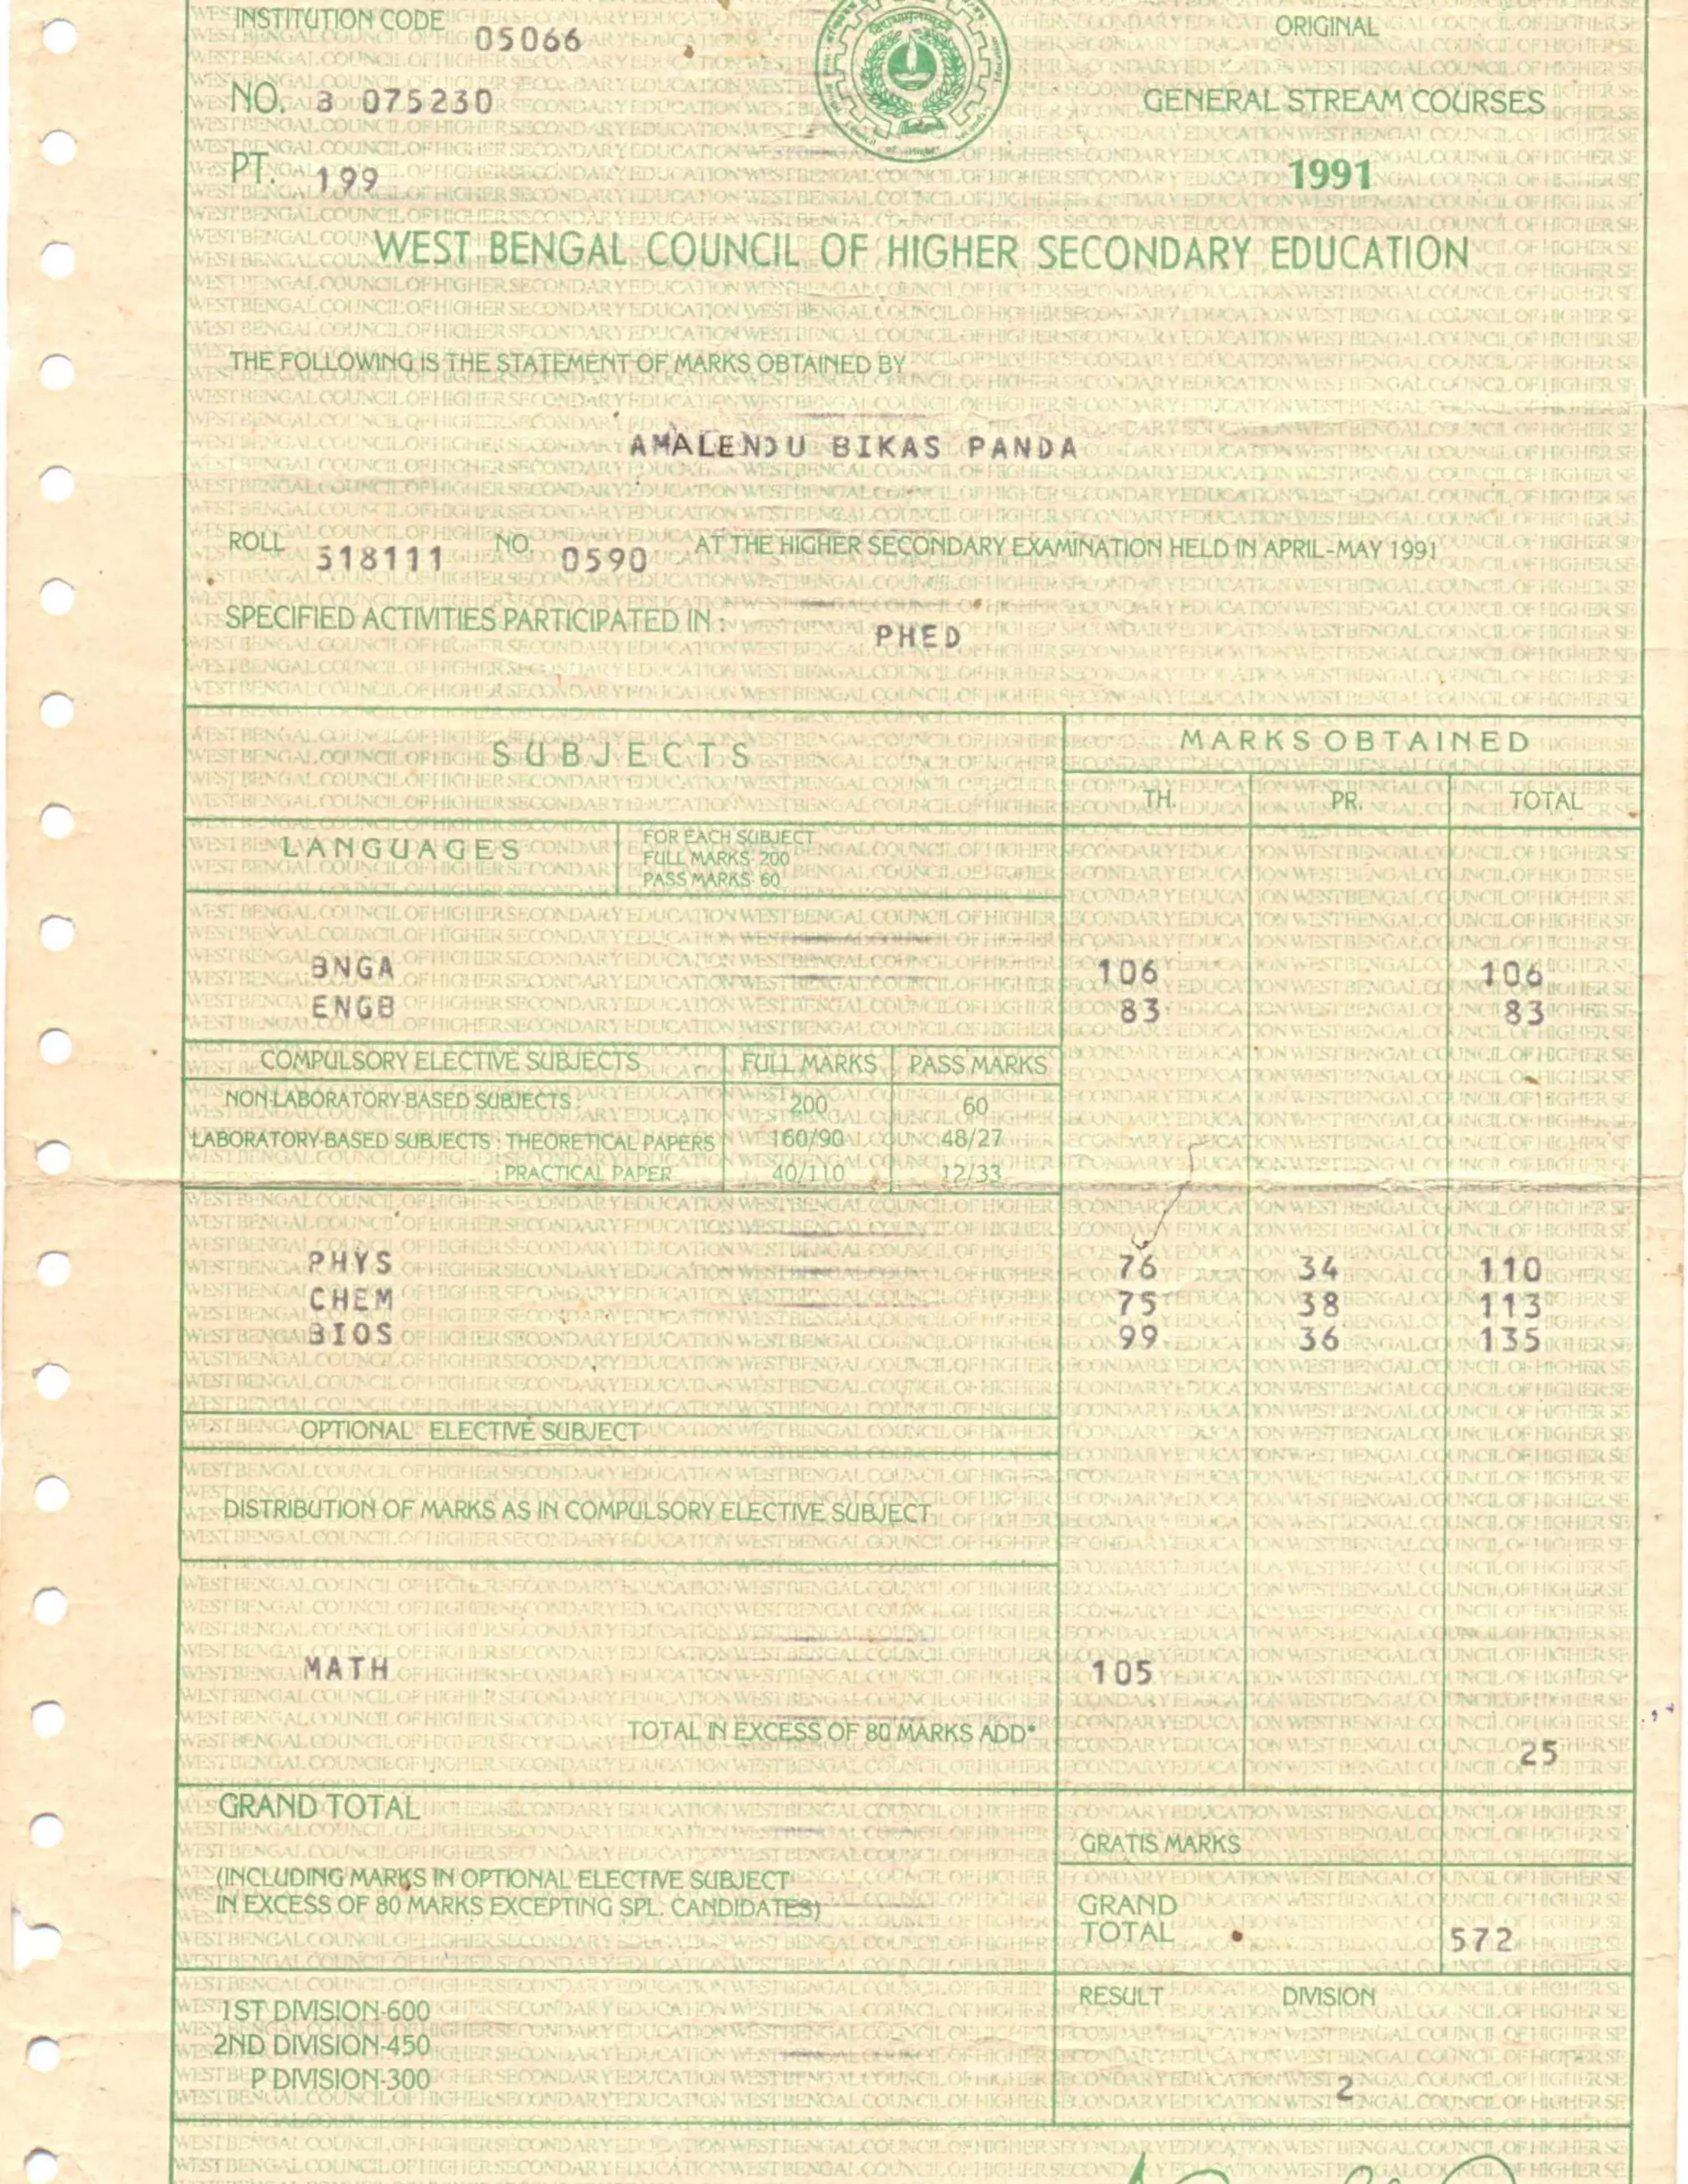 INSTITUTION CODE 05066
ORIGINAL
NO. B 075230
GENERAL STREAM COURSES
PT. 199
1991
WEST BENGAL COUNCIL OF HIGHER SECONDARY EDUCATION
THE FOLLOWING IS THE STATEMENT OF MARKS OBTAINED BY
AMALENDU BIKAS PANDA
ROLL 318111 NO. 0590 AT THE HIGHER SECONDARY EXAMINATION HELD IN APRIL-MAY 1991
SPECIFIED ACTIVITIES PARTICIPATED IN : PHED
SUBJECTS MARKS OBTAINED
TH. PR. TOTAL
LANGUAGES
FOR EACH SUBJECT
FULL MARKS-200
PASS MARKS-60
BNGA 106 106
ENGB 83 83
COMPULSORY ELECTIVE SUBJECTS FULL MARKS PASS MARKS
NON-LABORATORY-BASED SUBJECTS : 200 60
LABORATORY-BASED SUBJECTS : THEORETICAL PAPERS 160/90 48/27
: PRACTICAL PAPER 40/110 12/33
PHYS 76 34 110
CHEM 75 38 113
BIOS 99 36 135
OPTIONAL ELECTIVE SUBJECT
DISTRIBUTION OF MARKS AS IN COMPULSORY ELECTIVE SUBJECT
MATH 105
TOTAL IN EXCESS OF 80 MARKS ADD*
25
GRAND TOTAL
(INCLUDING MARKS IN OPTIONAL ELECTIVE SUBJECT
IN EXCESS OF 80 MARKS EXCEPTING SPL. CANDIDATES)
GRATIS MARKS
GRAND
TOTAL 572
1ST DIVISION-600
2ND DIVISION-450
P DIVISION-300
RESULT DIVISION
2